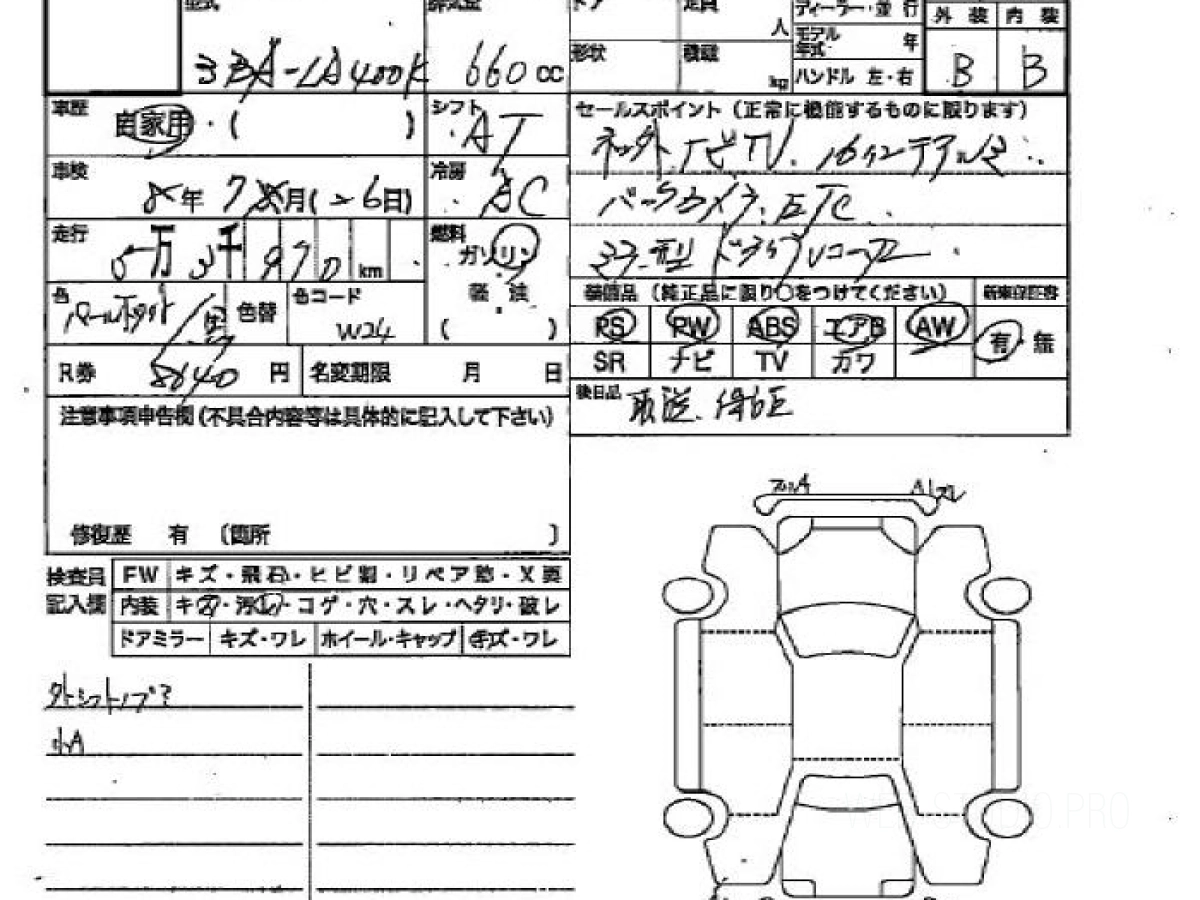 型式 排気量 ドア 定員 人 ディーラー・並行 外装 内装
形状 積載 kg モデル年式 年
3BA-LA400K 660cc ハンドル 左・右 B B
車歴 自家用・( )
シフト AT
セールスポイント(正常に機能するものに限ります)
TV. 16インチアルミ
車検 年 7 月( 26日)
冷房 AC
バックカメラ. ETC
走行 5万 3千 970 km
燃料 ガソリン
軽油
( )
ドラブレコーダー
色 パールホワイト/黒 色替 色コード W24
装備品(純正品に限り○をつけてください) 新車保証書
PS PW ABS エアB AW 有・無
SR ナビ TV カワ
R券 8640円 名変期限 月 日
後日品 取説.
注意事項申告欄(不具合内容等は具体的に記入して下さい)
修復歴 有 〔箇所 〕
検査員記入欄
FW キズ・飛石・ヒビ割・リペア跡・X要
内装 キズ・汚レ・コゲ・穴・スレ・ヘタリ・破レ
ドアミラー キズ・ワレ ホイール・キャップ キズ・ワレ
外シフトノブ?
小A